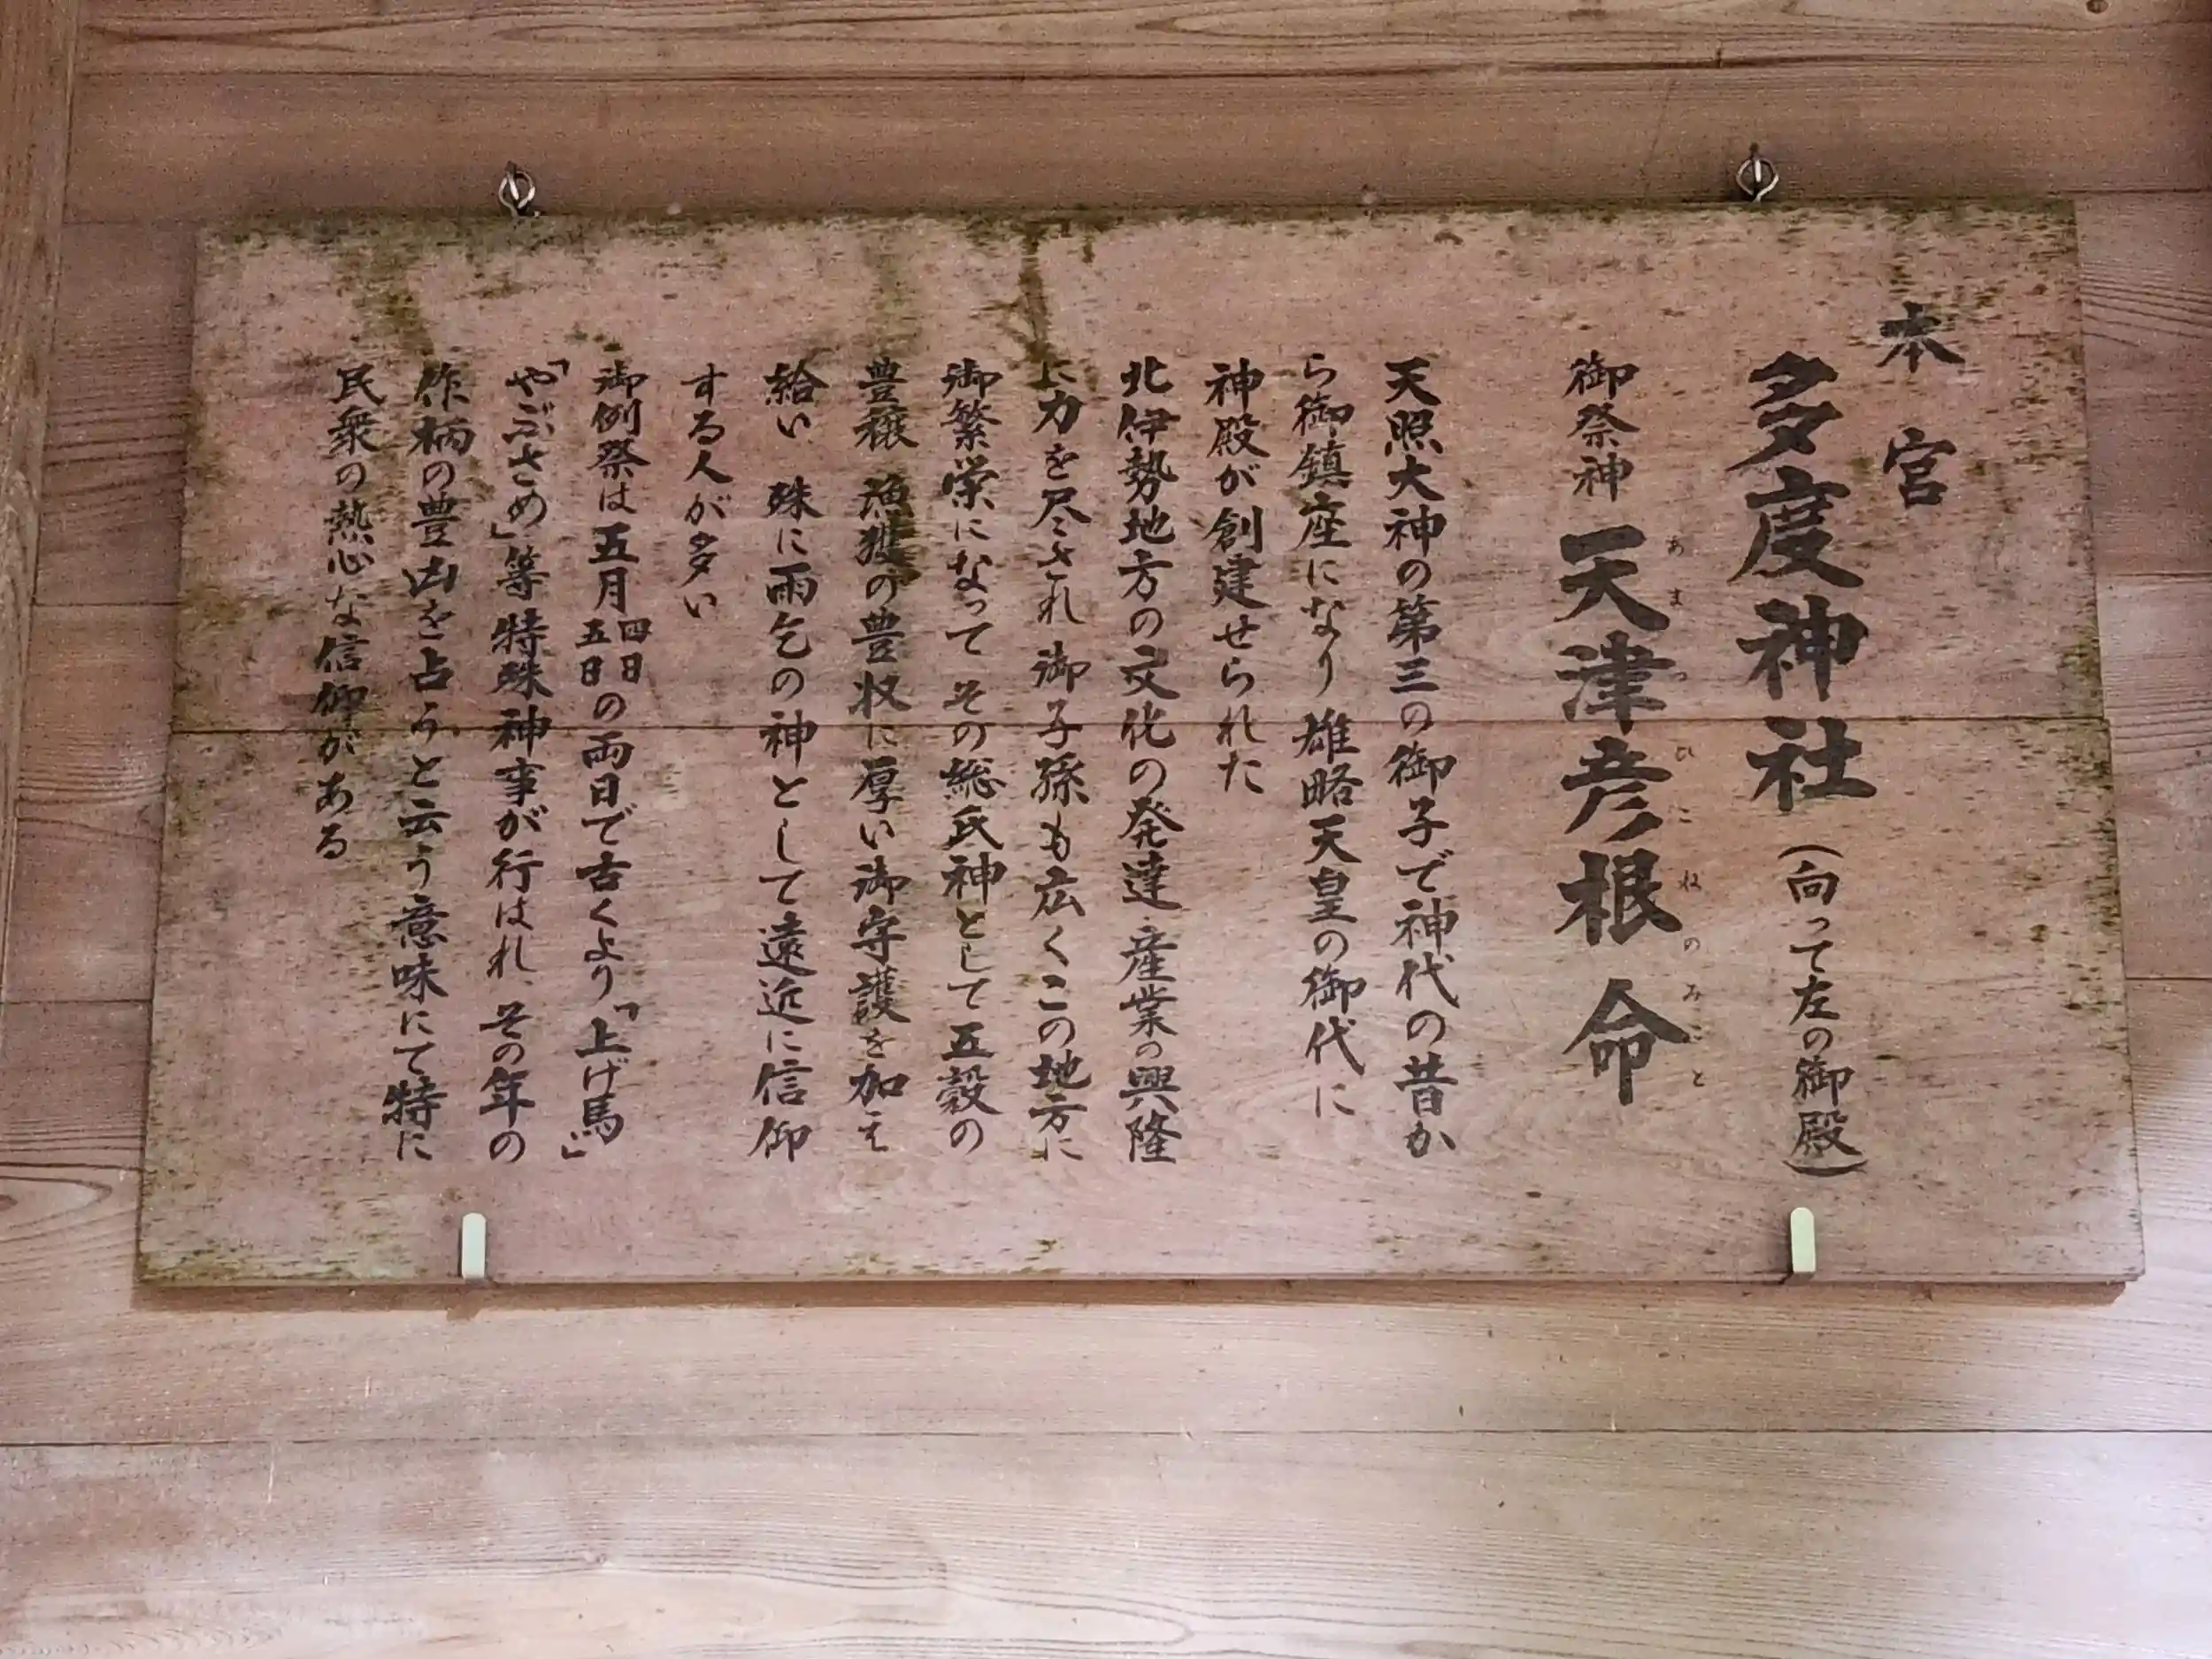 本宮
多度神社(向って左の御殿)
御祭神 天津彦根命
あまつひこねのみこと
天照大神の第三の御子で神代の昔か
ら御鎮座になり 雄略天皇の御代に
神殿が創建せられた
北伊勢地方の文化の発達 産業の興隆
に力を尽くされ 御子孫も広くこの地方に
御繁栄になって その総氏神として 五穀の
豊穣 漁獲の豊収に厚い御守護を加え
給い 殊に雨乞の神として遠近に信仰
する人が多い
御例祭は五月四日五日の両日で古くより「上げ馬」
「やぶさめ」等特殊神事が行はれ その年の
作柄の豊凶を占うと云う意味にて特に
民衆の熱心な信仰がある